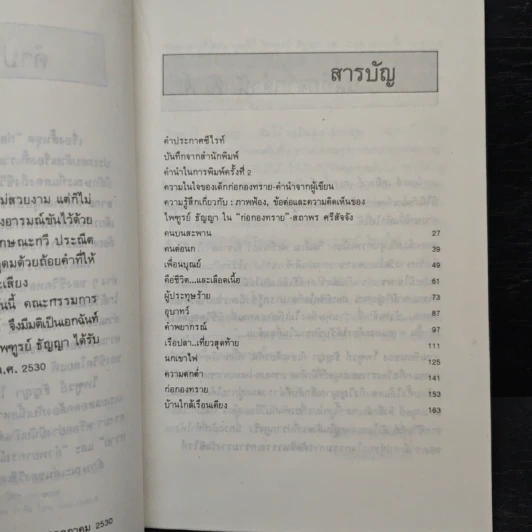 ม่สวยงาม แต่ก็ไม่
งอารมณ์ขันไว้ด้วย
กษณะกวี ประณีต
ดมด้วยถ้อยคำที่ให้
ะเสียง
นนี้ คณะกรรมการ
จึงมีมติเป็นเอกฉันท์
ไพฑูรย์ ธัญญา ได้รับ
.ศ. 2530
กฎาคม 2530
สารบัญ
คำประกาศซีไรท์
บันทึกจากสำนักพิมพ์
คำนำในการพิมพ์ครั้งที่ 2
ความในใจของเด็กก่อกองทราย-คำนำจากผู้เขียน
ความรู้สึกเกี่ยวกับ : ภาพพ้อง, ข้อต่อและความคิดเห็นของ
ไพฑูรย์ ธัญญา ใน "ก่อกองทราย"-สถาพร ศรีสัจจัง
คนบนสะพาน 27
คนต่อนก 39
เพื่อนบุณย์ 49
คือชีวิต...และเลือดเนื้อ 61
ผู้ประทุษร้าย 73
อุบาทว์ 87
คำพยากรณ์ 97
เรือปลา...เที่ยวสุดท้าย 111
นกเขาไฟ 125
ความตกต่ำ 141
ก่อกองทราย 153
บ้านใกล้เรือนเคียง 163